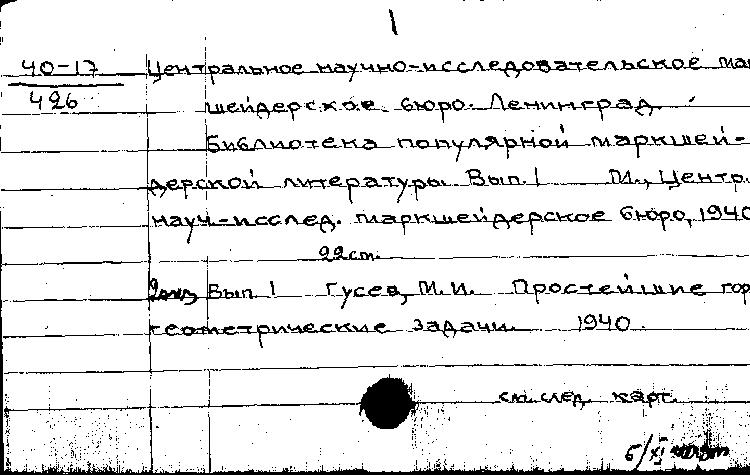 1
40-17 Центральное научно-исследовательское мар
426 шейдерское бюро. Ленинград.
Библиотека популярной маркшей-
дерской литературы. Вып. 1 М., Центр.
науч-исслед. маркшейдерское бюро, 1940
22 см.
2экз Вып. 1 Гусев, М.И. Простейшие гор
геометрические задачи. 1940.
см. след. карт.
5/XI